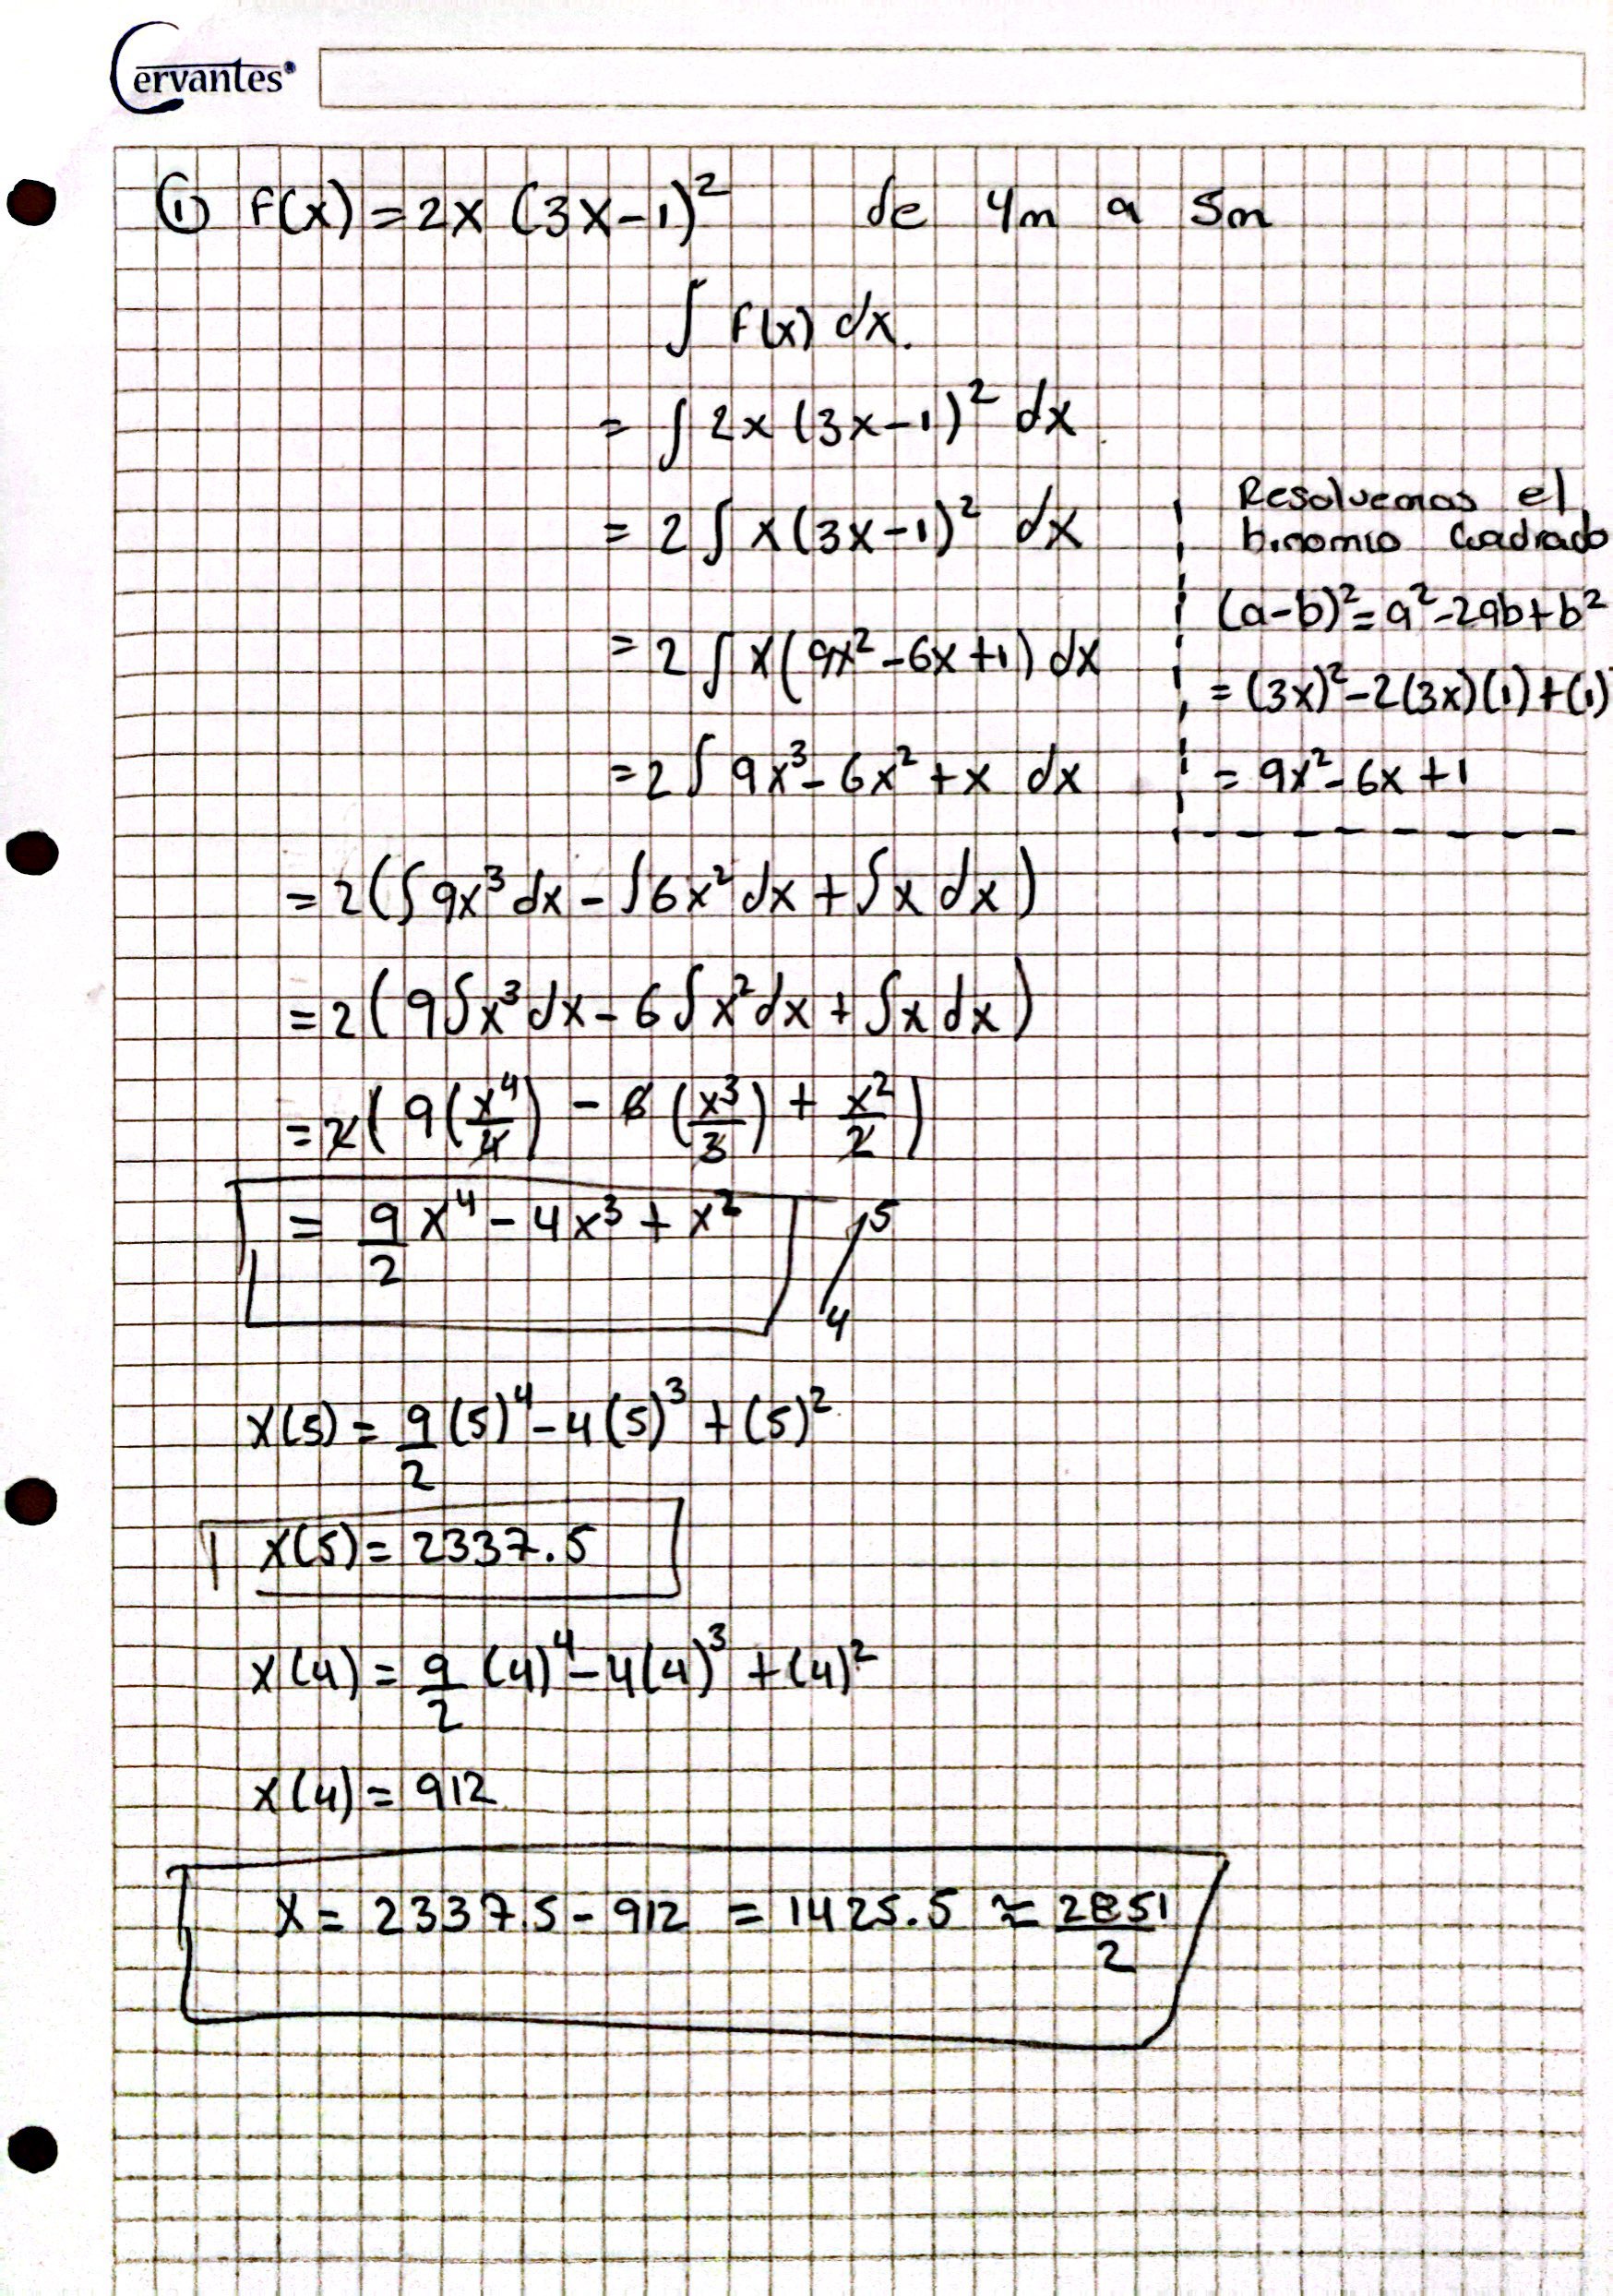 Cervantes®
① F(x) = 2x (3x-1)² de 4m a 5m
∫ F(x) dx.
= ∫ 2x (3x-1)² dx
= 2 ∫ x(3x-1)² dx
= 2 ∫ x(9x²-6x+1) dx
= 2 ∫ 9x³-6x²+x dx
Resolvemos el
binomio Cuadrado
(a-b)² = a²-2ab+b²
= (3x)²-2(3x)(1)+(1)
= 9x²-6x+1
= 2(∫9x³dx - ∫6x²dx + ∫x dx)
= 2(9∫x³dx - 6∫x²dx + ∫x dx)
= 2(9(x⁴/4) - 6(x³/3) + x²/2)
= 9/2 x⁴ - 4x³ + x² /⁵₄
x(5) = 9/2 (5)⁴ - 4(5)³ + (5)²
x(5) = 2337.5
x(4) = 9/2 (4)⁴ - 4(4)³ + (4)²
x(4) = 912
x = 2337.5 - 912 = 1425.5 ≈ 2851/2